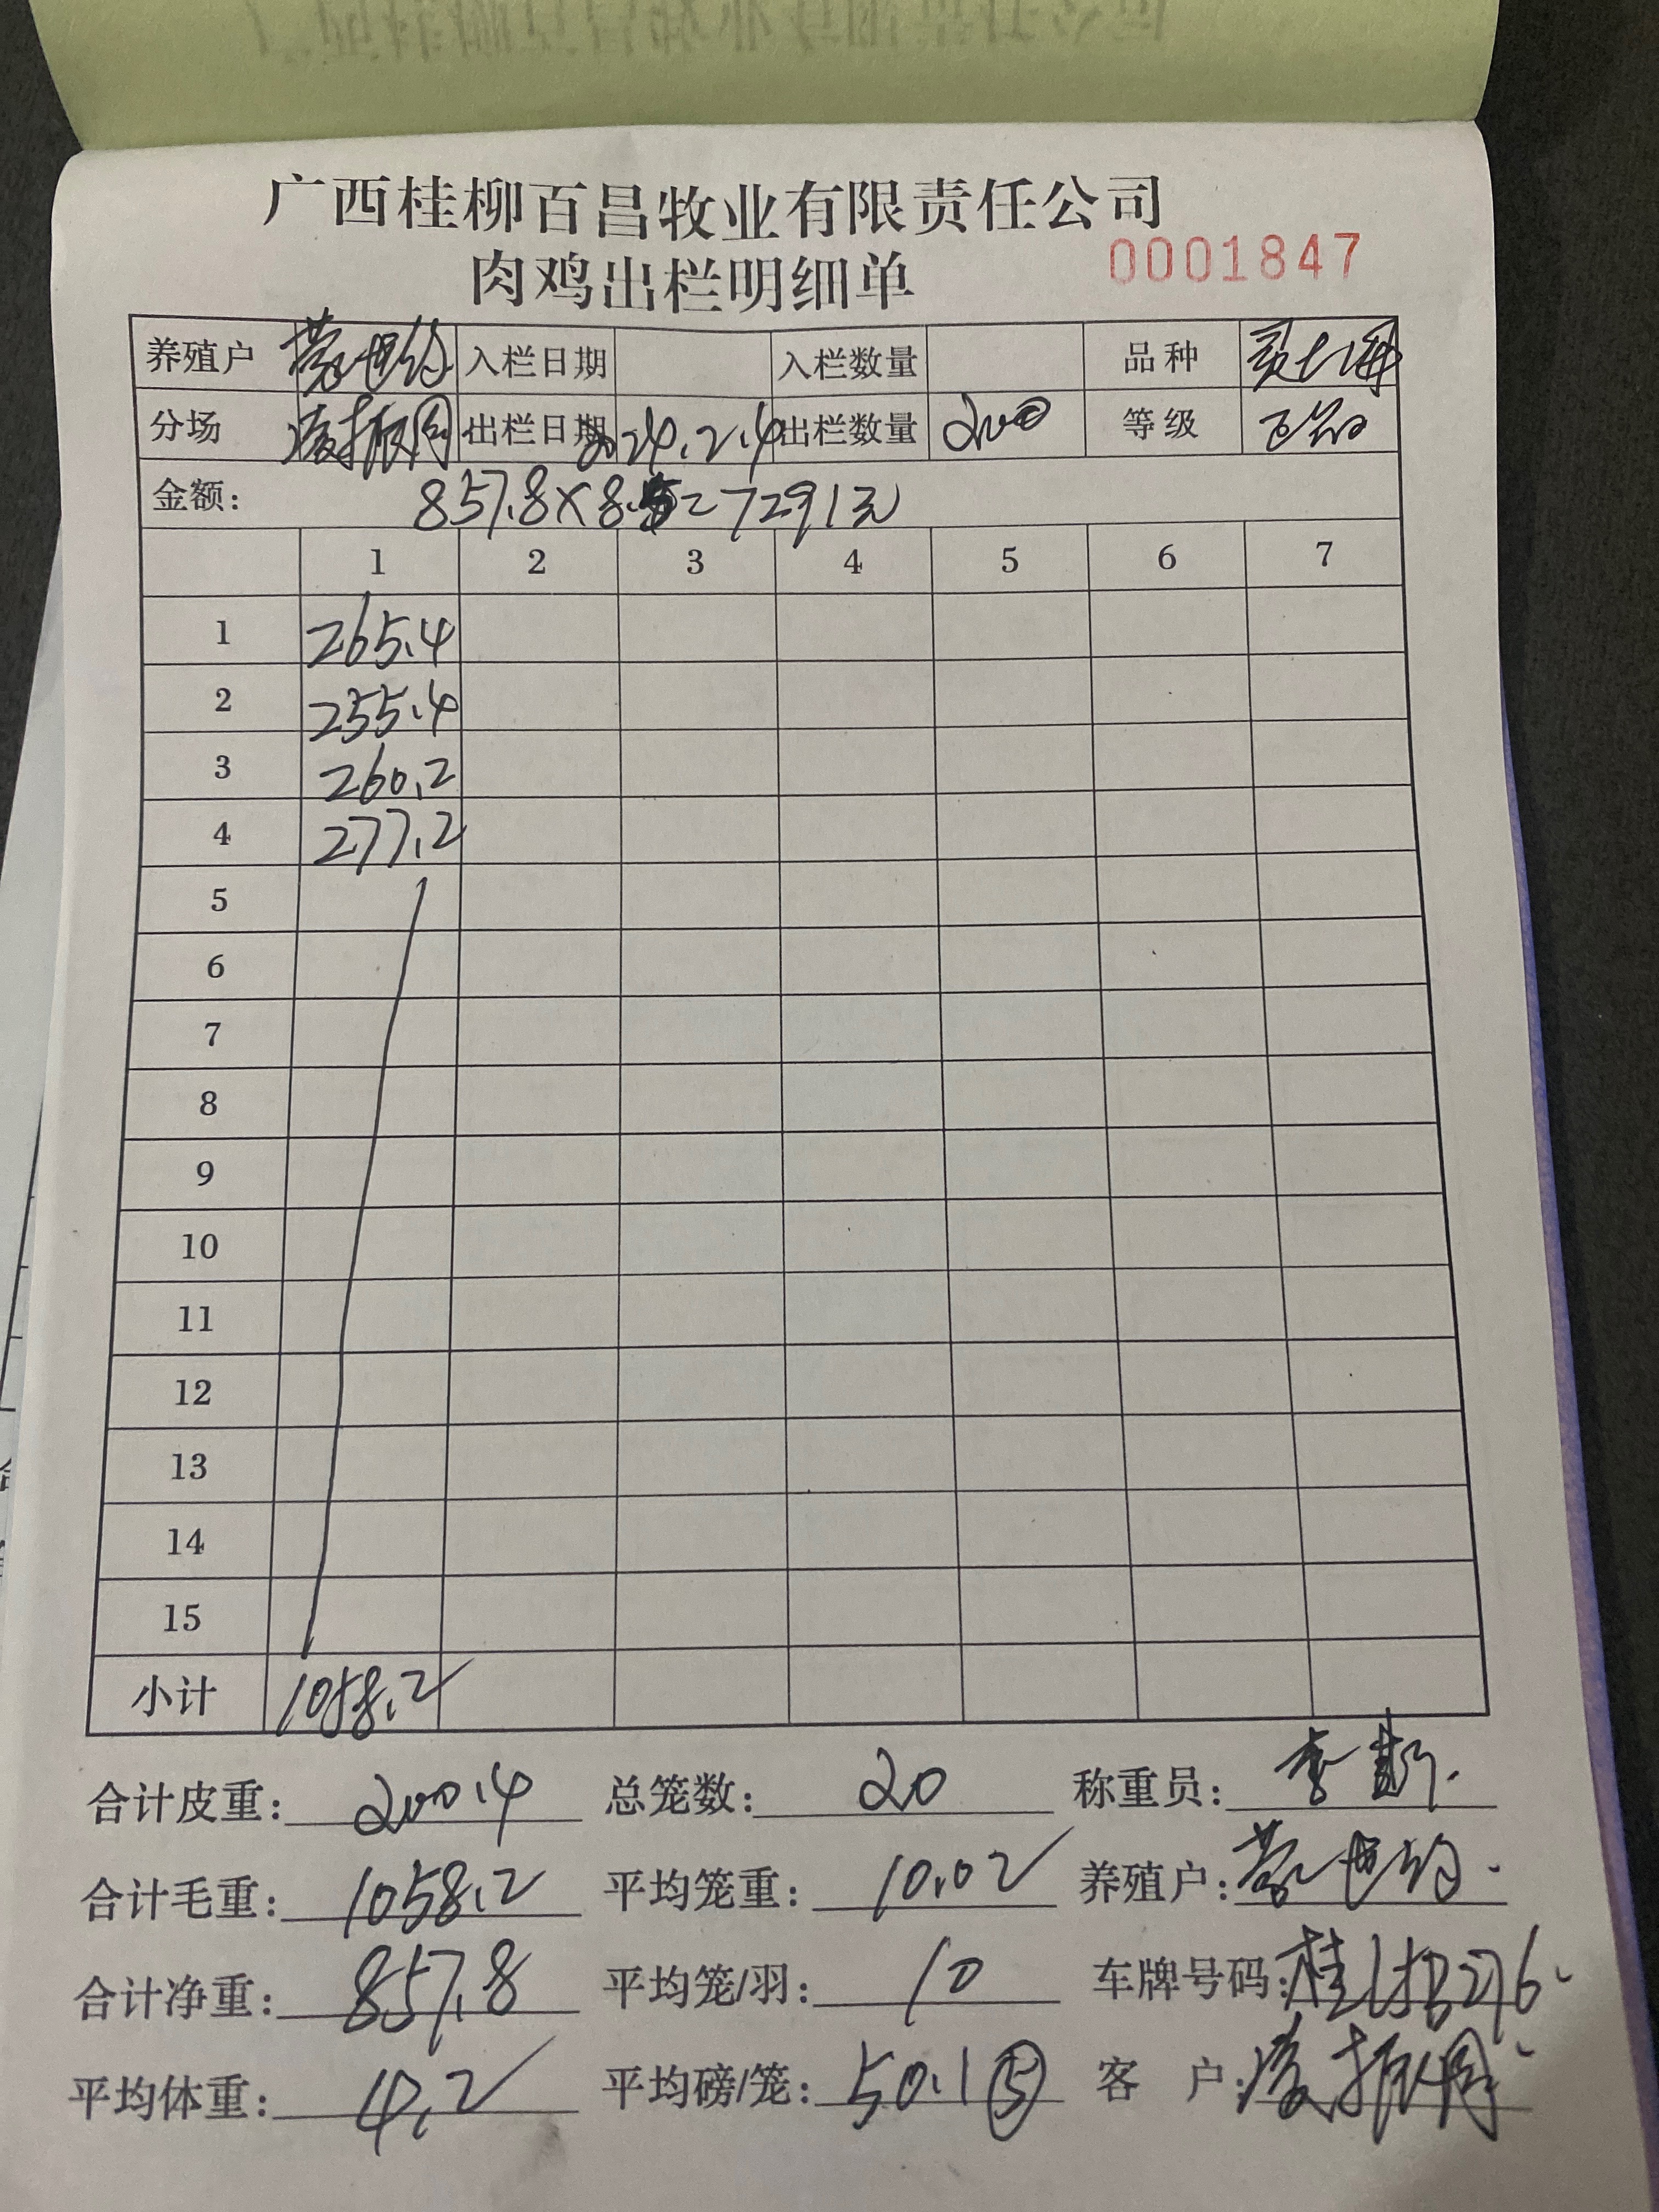 广西桂柳百昌牧业有限责任公司
肉鸡出栏明细单 0001847
养殖户 入栏日期 入栏数量 品种
分场 出栏日期 2024.2.4 出栏数量 200 等级
金额: 857.8×8.5=7291元
1 2 3 4 5 6 7
1 265.4
2 255.4
3 260.2
4 277.2
5
6
7
8
9
10
11
12
13
14
15
小计 1058.2
合计皮重: 200.4 总笼数: 20 称重员: 李
合计毛重: 1058.2 平均笼重: 10.02 养殖户:
合计净重: 857.8 平均笼/羽: 10 车牌号码: 桂
平均体重: 4.2 平均磅/笼: 50.1⑤ 客户: